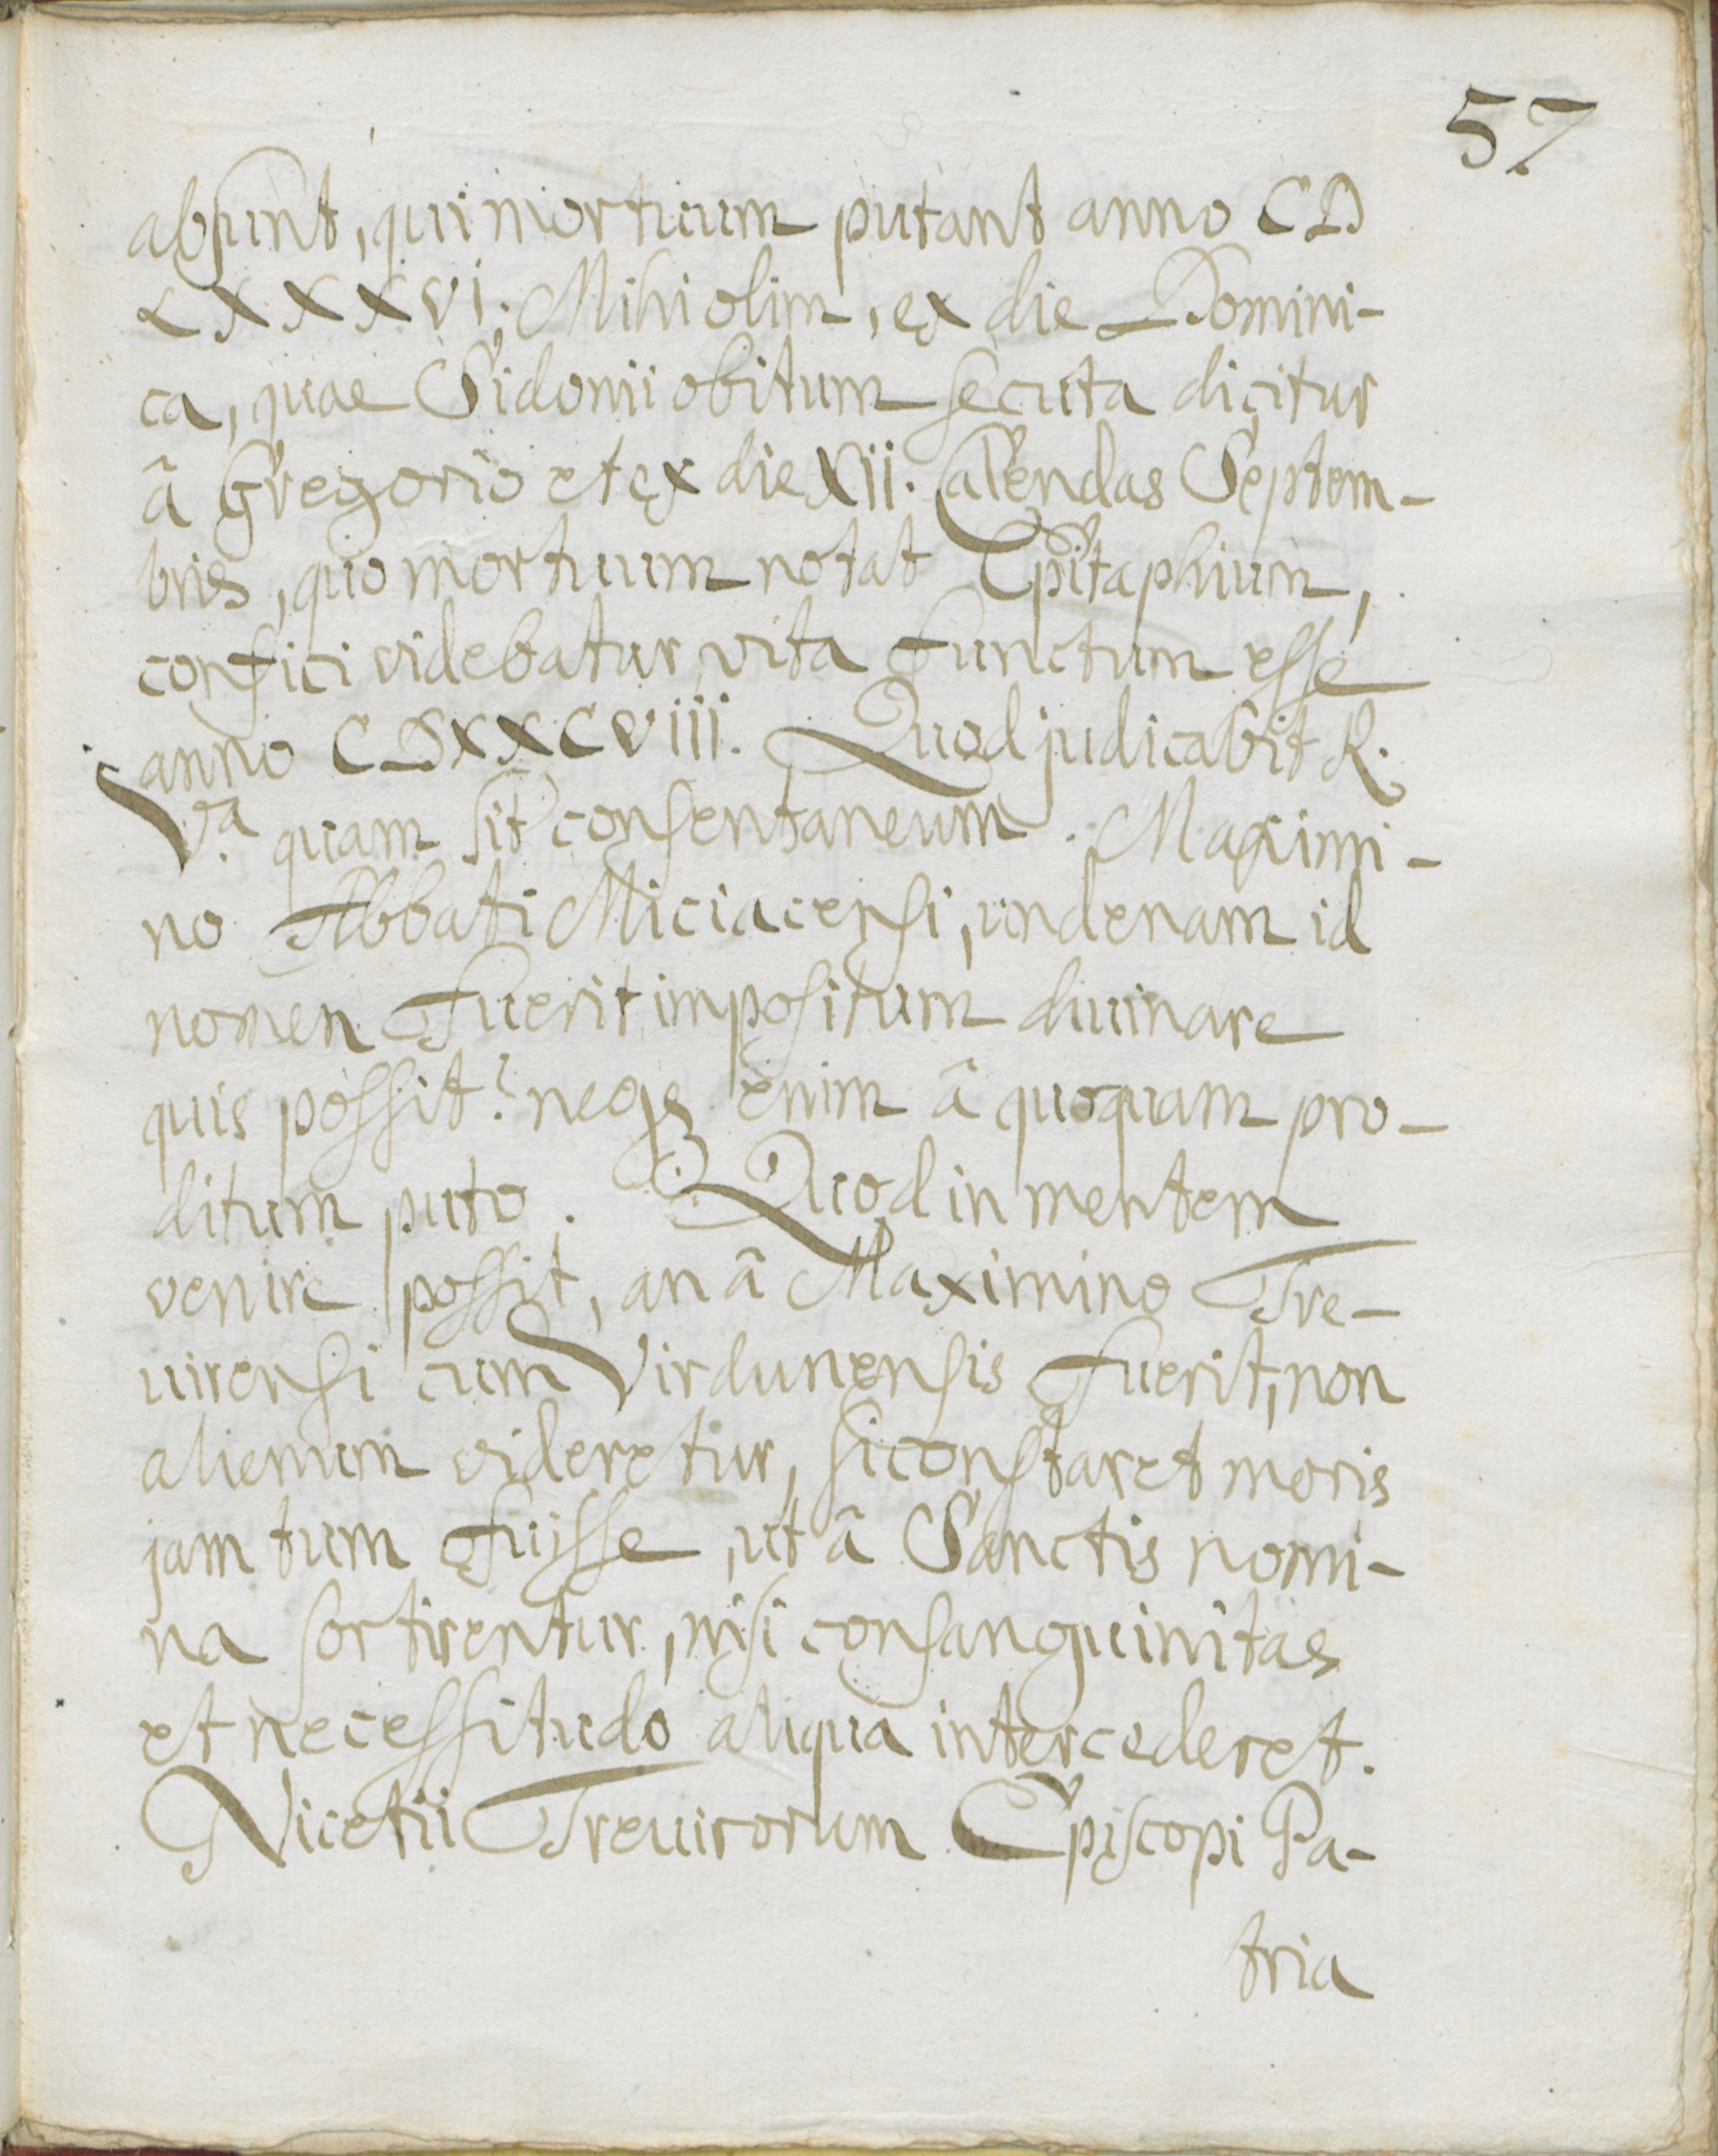 57
absunt, qui mortuum putant anno CD
LXXXVI; Mihi olim, ex die Domini-
ca, quae Sidonii obitum secuta dicitur
â Gregorio et ex die XII. Calendas Septem-
bris, quo mortuum notat Epitaphium,
confici videbatur vita functum esse
anno CDXXCVIIII. Quod judicabit R.
V.ª quam sit consentaneum. Maximi-
no Abbati Miciacensi, undenam id
nomen fuerit impositum diuinare
quis possit? neqȝ enim â quoquam pro-
ditum puto. Quod in mentem
venire possit, an â Maximino Tre-
uirensi cum Virdunensis fuerit, non
alienum videretur, si constaret moris
jam tum fuisse, ut â Sanctis nomi-
na sortirentur, nisi consanguinitas
et necessitudo aliqua intercederet.
Nicetii Treuirorum Episcopi Pa-
tria